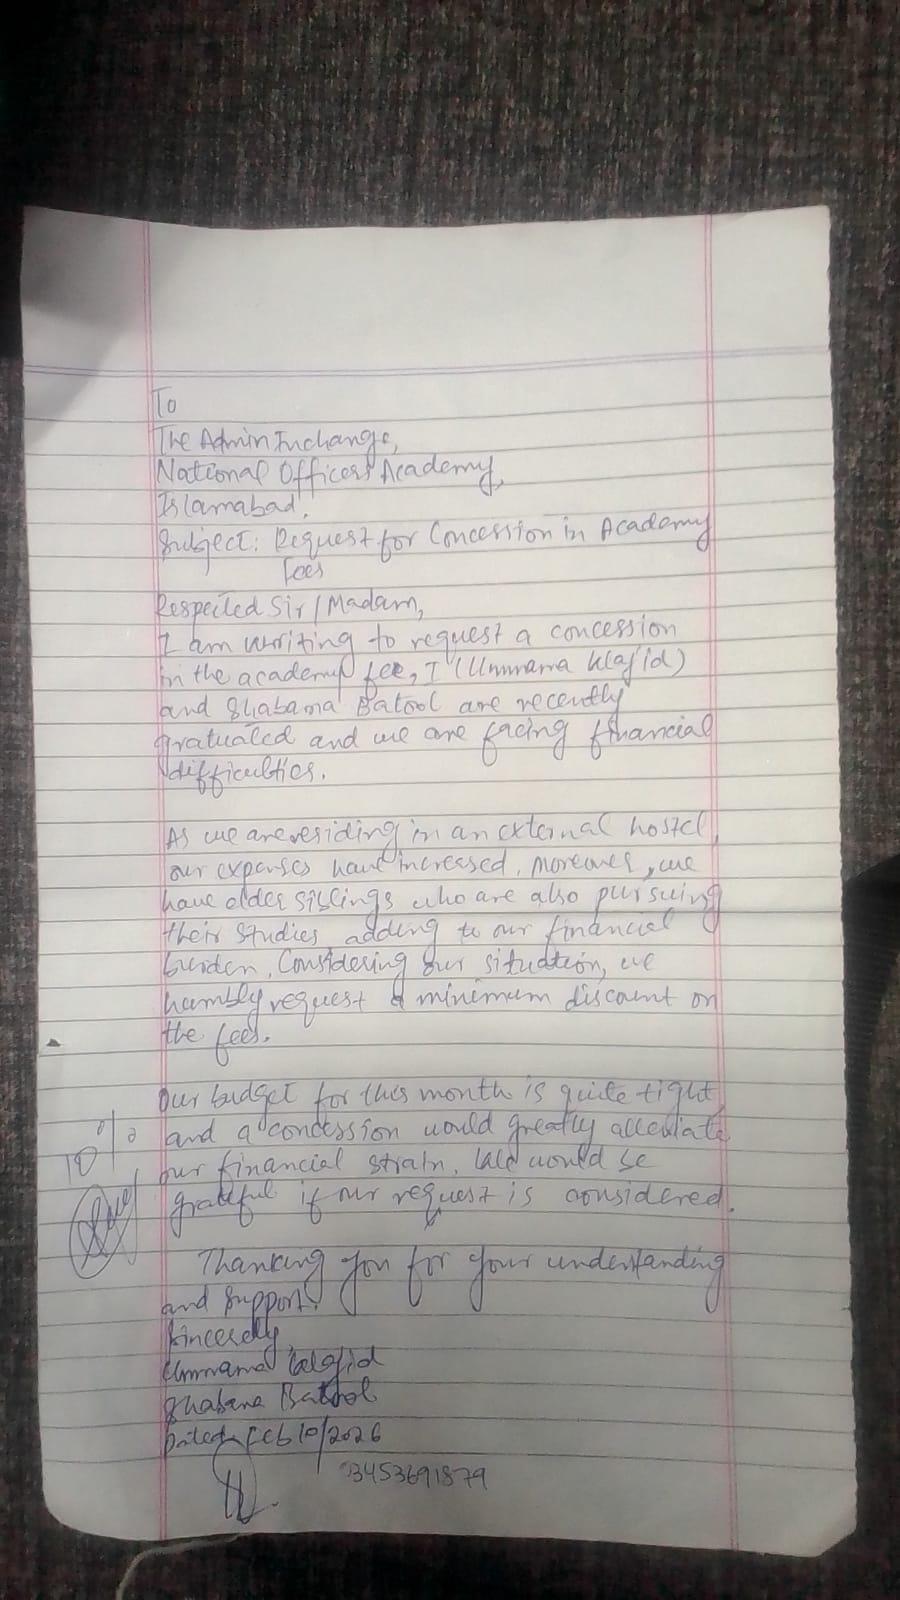 To
The Admin Incharge,
National Officers Academy,
Islamabad.
Subject: Request for Concession in Academy
Fees
Respected Sir/Madam,
I am writing to request a concession
in the academy fee, I (Ummama Wajid)
and Shabana Batool are recently
gratuated and we are facing financial
difficulties.
As we are residing in an external hostel,
our expenses have increased, moreover, we
have older siblings who are also pursuing
their studies, adding to our financial
burden. Considering our situation, we
humbly request a minimum discount on
the fees.
Our budget for this month is quite tight,
and a concession would greatly alleviate
10%
our financial strain. We would be
grateful if our request is considered.
Thanking you for your understanding
and support.
Sincerely
Ummama Wajid
Shabana Batool
Dated Feb 10/2026
03453691879